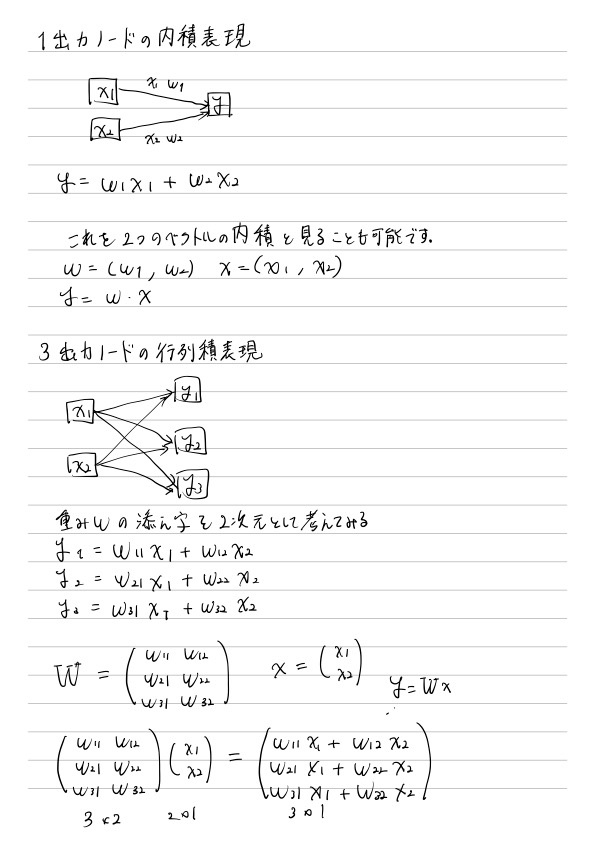 1出力ノードの内積表現
x1 x1 w1 y
x2 x2 w2
y = w1x1 + w2x2
これを2つのベクトルの内積と見ることも可能です.
w = (w1, w2) x = (x1, x2)
y = w・x
3出力ノードの行列積表現
y1
x1
y2
x2
y3
重みwの添え字を2次元として考えてみる
y1 = w11 x1 + w12 x2
y2 = w21 x1 + w22 x2
y3 = w31 x1 + w32 x2
W = (w11 w12 w21 w22 w31 w32) x = (x1 x2) y = Wx
(w11 w12 w21 w22 w31 w32)(x1 x2) = (w11 x1 + w12 x2 w21 x1 + w22 x2 w31 x1 + w32 x2)
3×2 2×1 3×1